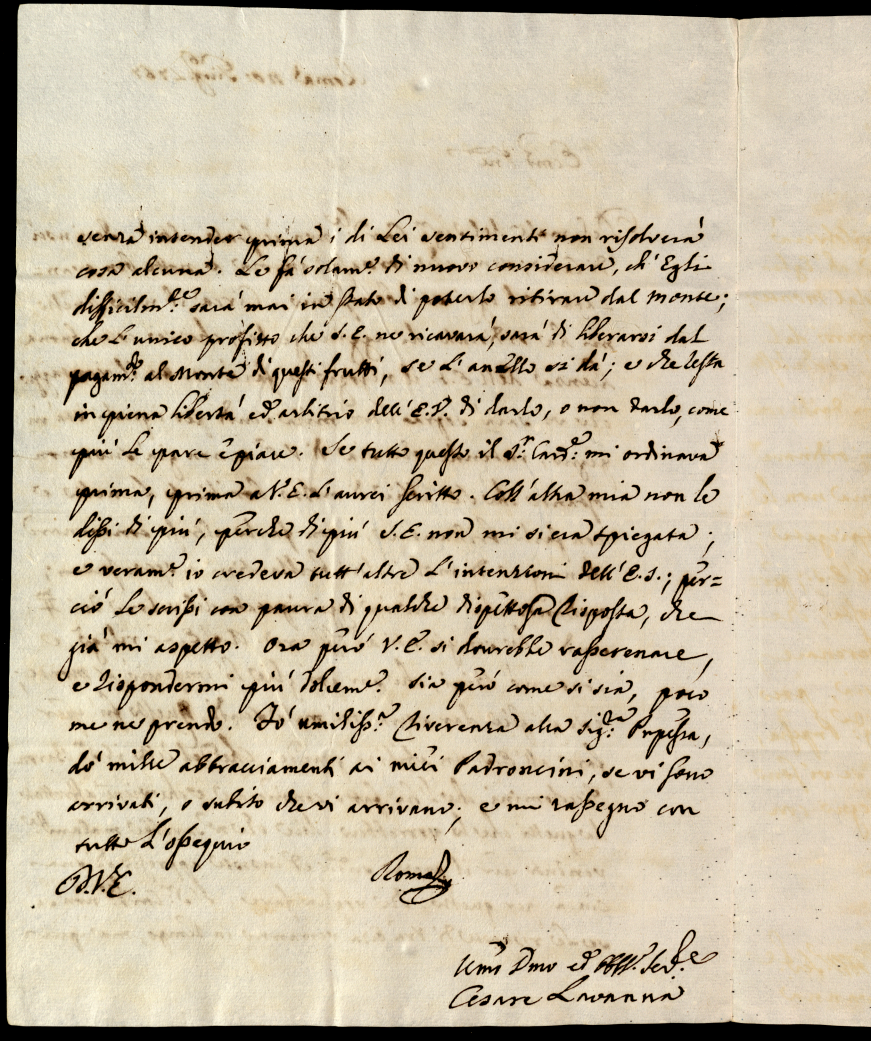 senza intender prima i di Lei sentimenti non risolverà
cosa alcuna. Le fà solam.e di nuovo considerare, ch'Egli
difficilm.te sarà mai in stato di poterlo ritirare dal Monte;
che l'unico profitto che S. E. ne ricavarà, sarà di liberarsi dal
pagam.to al Monte di questi frutti, se l'anello si dà; e che resta
in piena libertà ed arbitrio dell'E.V. di darlo, o non darlo, come
più Le pare e piace. Se tutto questo il S.r Card.e mi ordinava
prima, prima a V.E. l'aurei scritto. Coll'altra mia non le
dissi di più, perche di più S.E. non mi si era spiegata;
e veram.e io credeva tutt'altre l'intenzioni dell'E.S.; per=
ciò Le scrissi con paura di qualche dispettosa risposta, che
già mi aspetto. Ora però V.E. si dovrebbe rasserenare,
e rispondermi più dolcem.e. Sia però come si sia, poco
me ne prendo. Fò umiliss.a riverenza alla Sig.ra Pnpessa,
dò mille abbracciamenti ai miei Padroncini, se vi sono
arrivati, o subito che vi arrivano; e mi rassegno con
tutto l'ossequio
D.V.E.
Roma
Umo Dmo ed Obb. Se.re
Cesare Lavanna